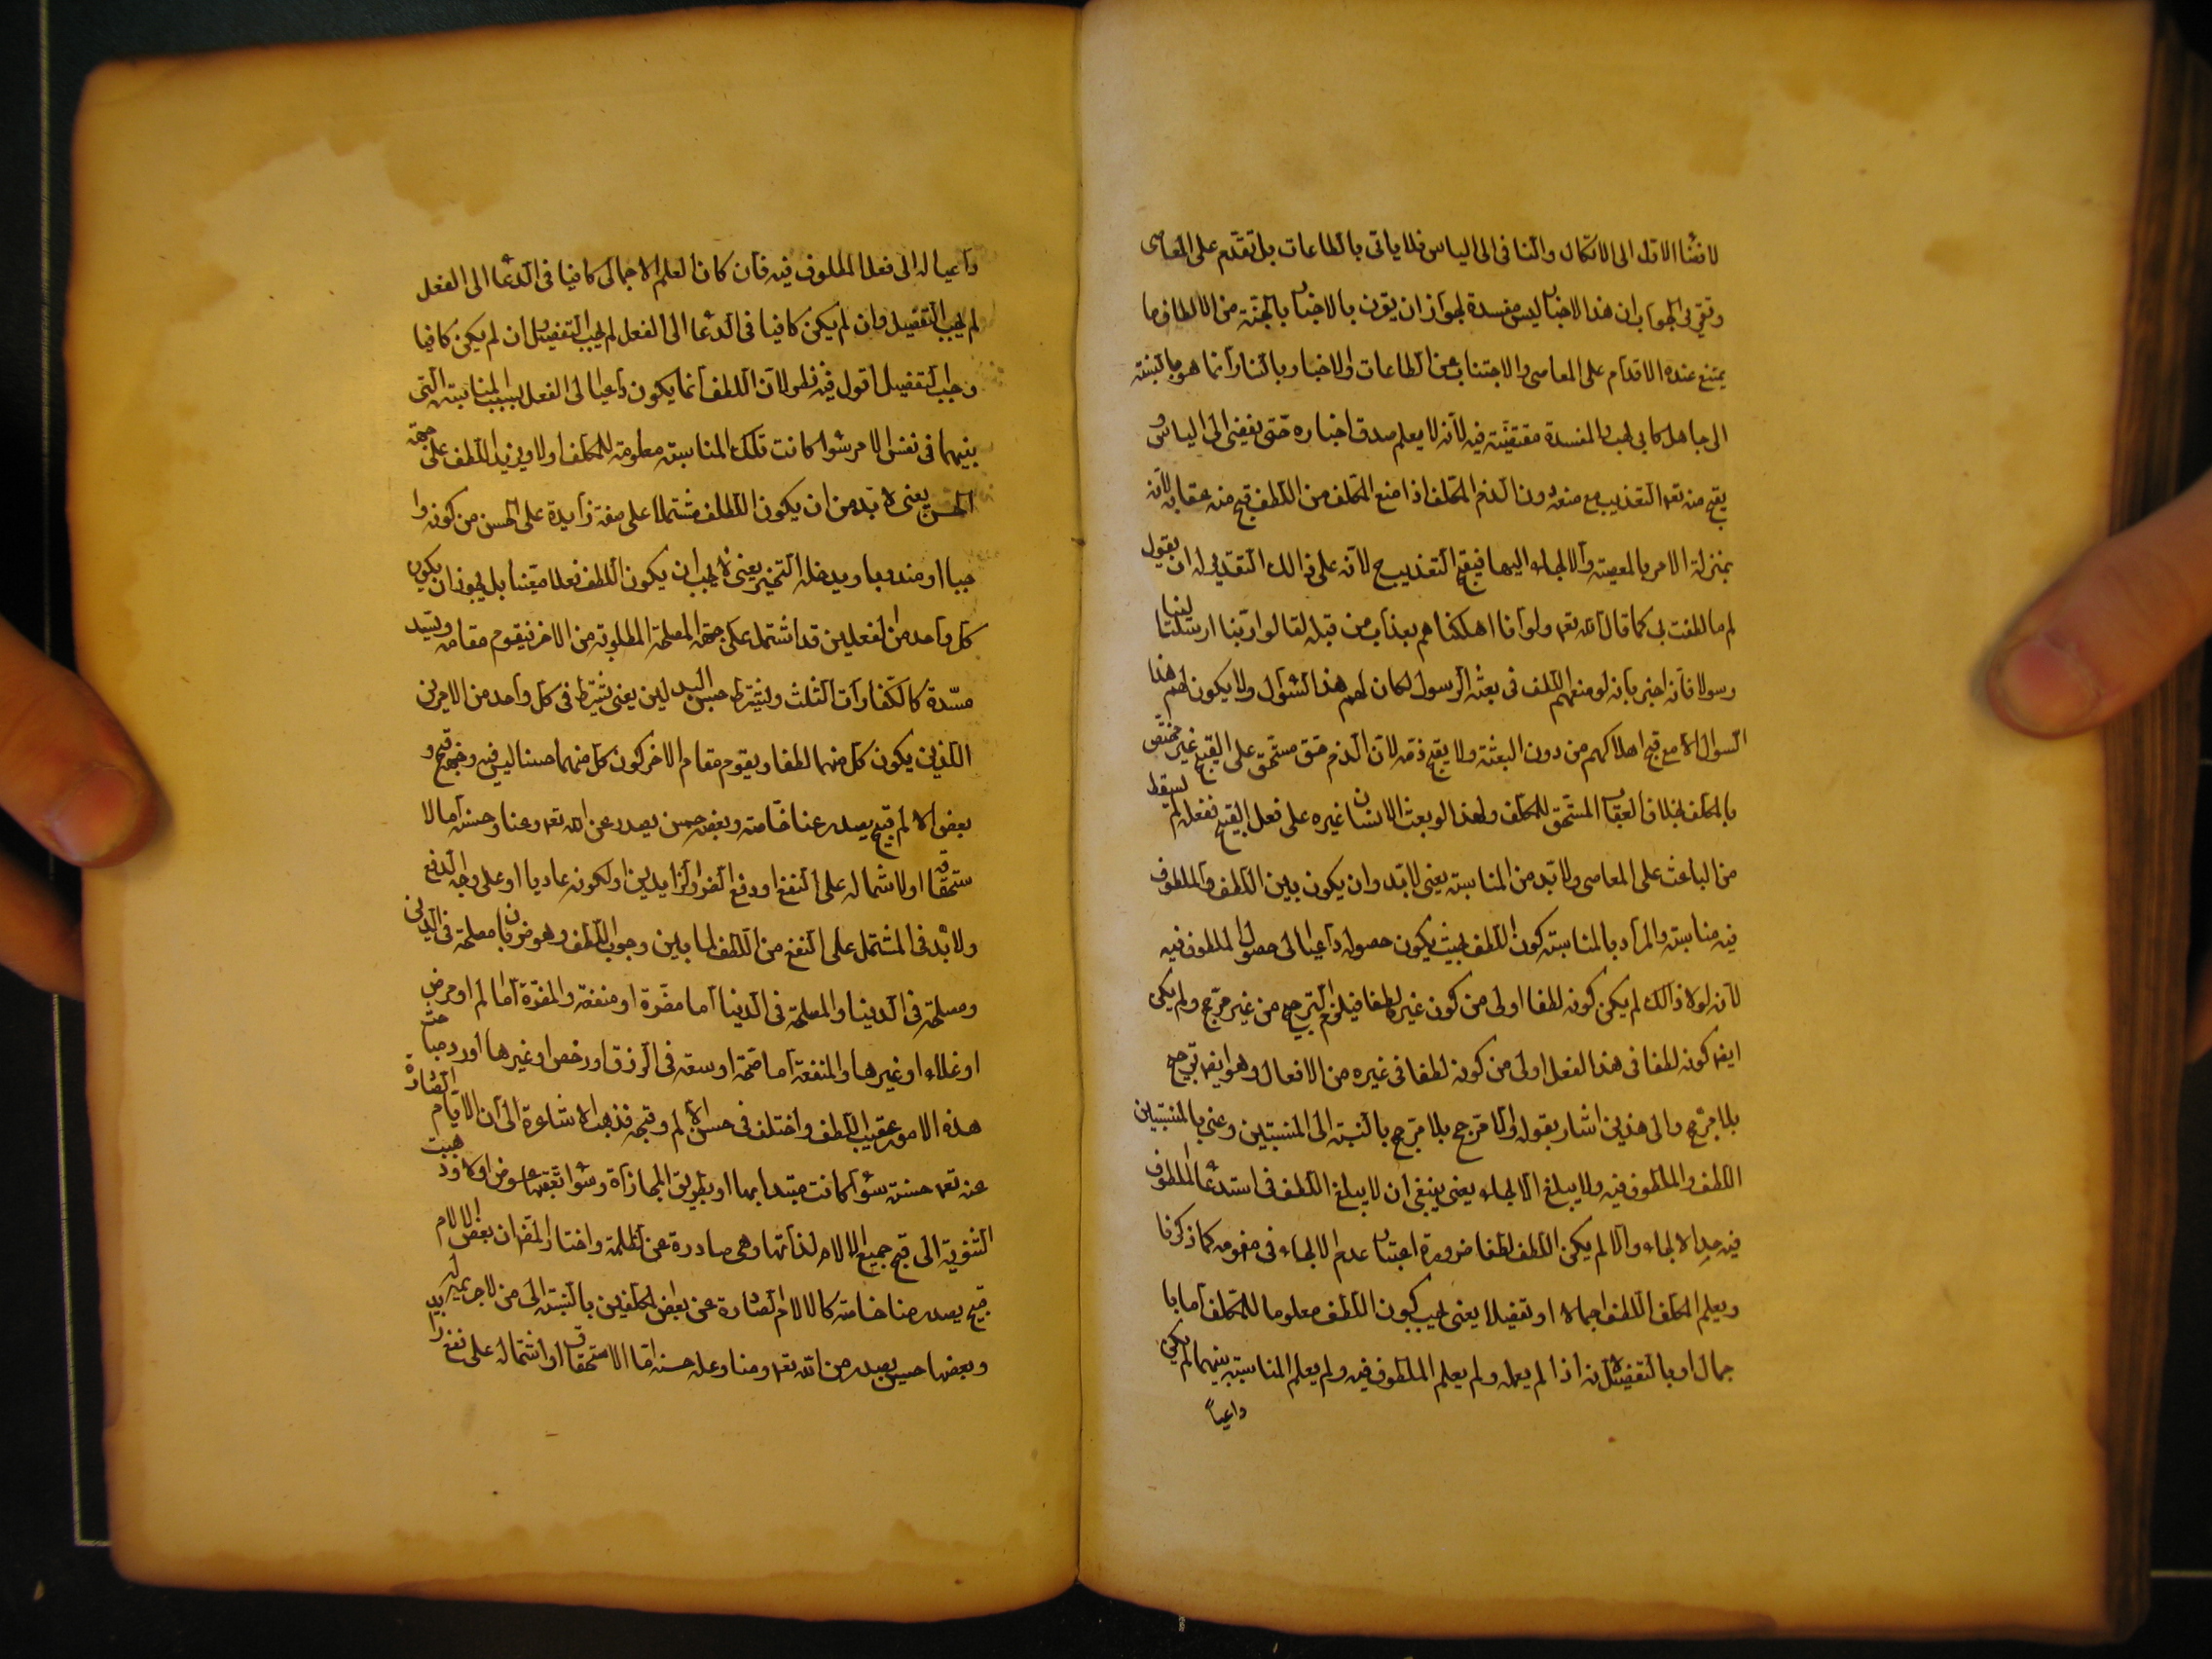 لافضاء الاول الى الاتكال والثانى الى الياس فلا ياتى بالطاعات بل تقدم على المعاصى
وتقرير الجواب ان هذا الاخبار ليس مفسدة لجواز ان يقرن بالاخبار بالجنة من الالطاف ما
يمتنع عنده الاقدام على المعاصى والاجتناب عن الطاعات والاخبار بالنار انما هو بالنسبة
الى جاهل كابى لهب والمفسدة منتفية فيه لانه لا يعلم صدق اخباره حتى يفضى الى الياس و
يقبح منه تعه التعذيب مع منعه دون الذم المكلف اذا منع المكلف من اللطف قبح منه عقابه لانه
بمنزلة الامر بالمعصية والالجاء اليها فيقبح التعذيب ح لانه على ذالك التقدير له ان يقول
لم ما لطفت بى كما قال الله تعه ولو انا اهلكناهم بعذاب من قبله لقالوا ربنا لولا ارسلت الينا
رسولا فانه اخبر بانه لو منعهم اللطف فى بعثه الرسول لكان لهم هذا السؤال ولا يكون لهم هذا
السوال الا مع قبح اهلاكهم من دون البعثة ولا يقبح ذمه لان الذم حق مستحق على القبيح غير مختص
بالمكلف بخلاف العقاب المستحق للمكلف ولهذا لو بعث الانسان غيره على فعل القبيح ففعله لم يسقط
من الباعث على المعاصى ولا بد من المناسبة يعنى لابد وان يكون بين اللطف والملطوف
فيه مناسبة والمراد بالمناسبة كون اللطف بحيث يكون حصوله داعيا الى حصول الملطوف فيه
لانه لولا ذالك لم يكن كونه لطفا اولى من كون غيره لطفا فيلزم الترجيح من غير مرجح ولم يكن
ايضه كونه لطفا فى هذا الفعل اولى من كونه لطفا فى غيره من الافعال وهو ايضه ترجيح
بلا مرجح والى هذين اشار بقوله والا ترجح بلا مرجح بالنسبة الى المنتسبين وعنى بالمنتسبين
اللطف والملطوف فيه ولا يبلغ الالجاء يعنى ينبغى ان لا يبلغ اللطف فى استدعاء الملطوف
فيه حد الالجاء والا لم يكن اللطف لطفا ضرورة اعتبار عدم الالجاء فى مفهومه كما ذكرنا
ويعلم المكلف اللطف اجمالا او تفصيلا يعنى يجب كون اللطف معلوما للمكلف اما با
جمال او بالتفصيل لانه اذا لم يعلمه ولم يعلم الملطوف فيه ولم يعلم المناسبة بينهما لم يكن
داعياً
داعيا له الى فعل الملطوف فيه فان كان العلم الاجمالى كافيا فى الدعاء الى الفعل
لم يجب التفصيل وان لم يكن كافيا فى الدعاء الى الفعل لم يجب التفصيل ان لم يكن كافيا
وجب التفصيل اقول فيه نظر لان اللطف انما يكون داعيا الى الفعل بسبب المناسبة التى
بينهما فى نفس الامر سواء كانت تلك المناسبة معلومة للمكلف اولا ويزيد اللطف على جهة
الحسن يعنى لا بد من ان يكون اللطف مشتملا على صفة زايدة على الحسن من كونه وا
جبا او مندوبا ويدخله التخيير يعنى لا يجب ان يكون اللطف فعلا معينا بل يجوز ان يكون
كل واحد من الفعلين قد اشتمل على جهة المصلحة المطلوبة من الاخر فيقوم مقامه ويسد
مسدة كالكفارات الثلث ويشترط حسن البدلين يعنى يشترط فى كل واحد من الامرين
اللذين يكون كل منهما لطفا ويقوم مقام الاخر كون كل منهما حسنا ليس فيه وجه قبح و
بعض الالم قبيح يصدر عنا خاصة وبعضه حسن يصدر عن الله تعه وعنا وحسنه اما لا
ستحقاقه او لاشتماله على النفع او دفع الضرر الزايدين او لكونه عاديا او على وجه الدفع
ولا بد فى المشتمل على النفع من اللطف لما بين وجوب اللطف وهو ضربان مصلحة فى الدين
ومصلحة فى الدنيا والمصلحة فى الدنيا اما مضرة او منفعة والمضرة اما الم او مرض
او غلاء او غيرها والمنفعة اما صحة او سعة فى الرزق او رخص او غيرها اورد مباحث
هذه الامور عقيب اللطف واختلف فى حسن الالم وقبحه فذهب الاشاعرة الى ان الالام الصادرة
عنه تعه حسنة سواء كانت مبتدا بها او بطريق المجازاة وسواء تعقبها عوض اولا وذهبت
الثنوية الى قبح جميع الالام لذاتها وهى صادرة عن الظلمة واختار المصه ان بعض الالام
قبيح يصدر منا خاصة كالالام الصادرة عن بعض المكلفين بالنسبة الى من لا جريمة له
وبعضها حسن يصدر من الله تعه ومنا وعلة حسنه اما الاستحقاق او اشتماله على نفع زايد